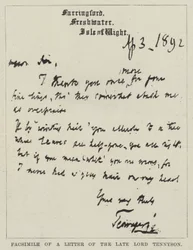 Farringford,
Freshwater,
Isle of Wight.
Ap 3_1892
Dear Sir,
more
I thank you once for your
fine lines, tho' this somewhat
as overpraise
If by 'wintry hairs' you allude to a tree
whose leaves are half-gone, you are right,
but if you mean 'white' you are wrong, for
I never had a grey hair on my head.
Yours very truly
Tennyson
FACSIMILE OF A LETTER OF THE LATE LORD TENNYSON.